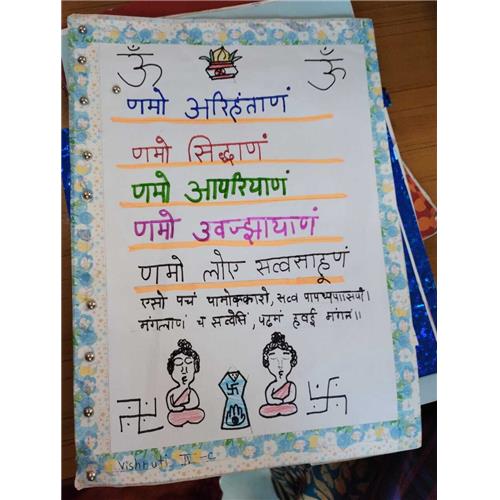 ॐ ॐ
णमो अरिहंताणं
णमो सिद्धाणं
णमो आयरियाणं
णमो उवज्झायाणं
णमो लोए सव्वसाहूणं
एसो पचं णमोक्कारो, सव्व
मंगलाणं च सव्वेसिं, पढमं हवई मंगलं ॥
Vishruti III-C